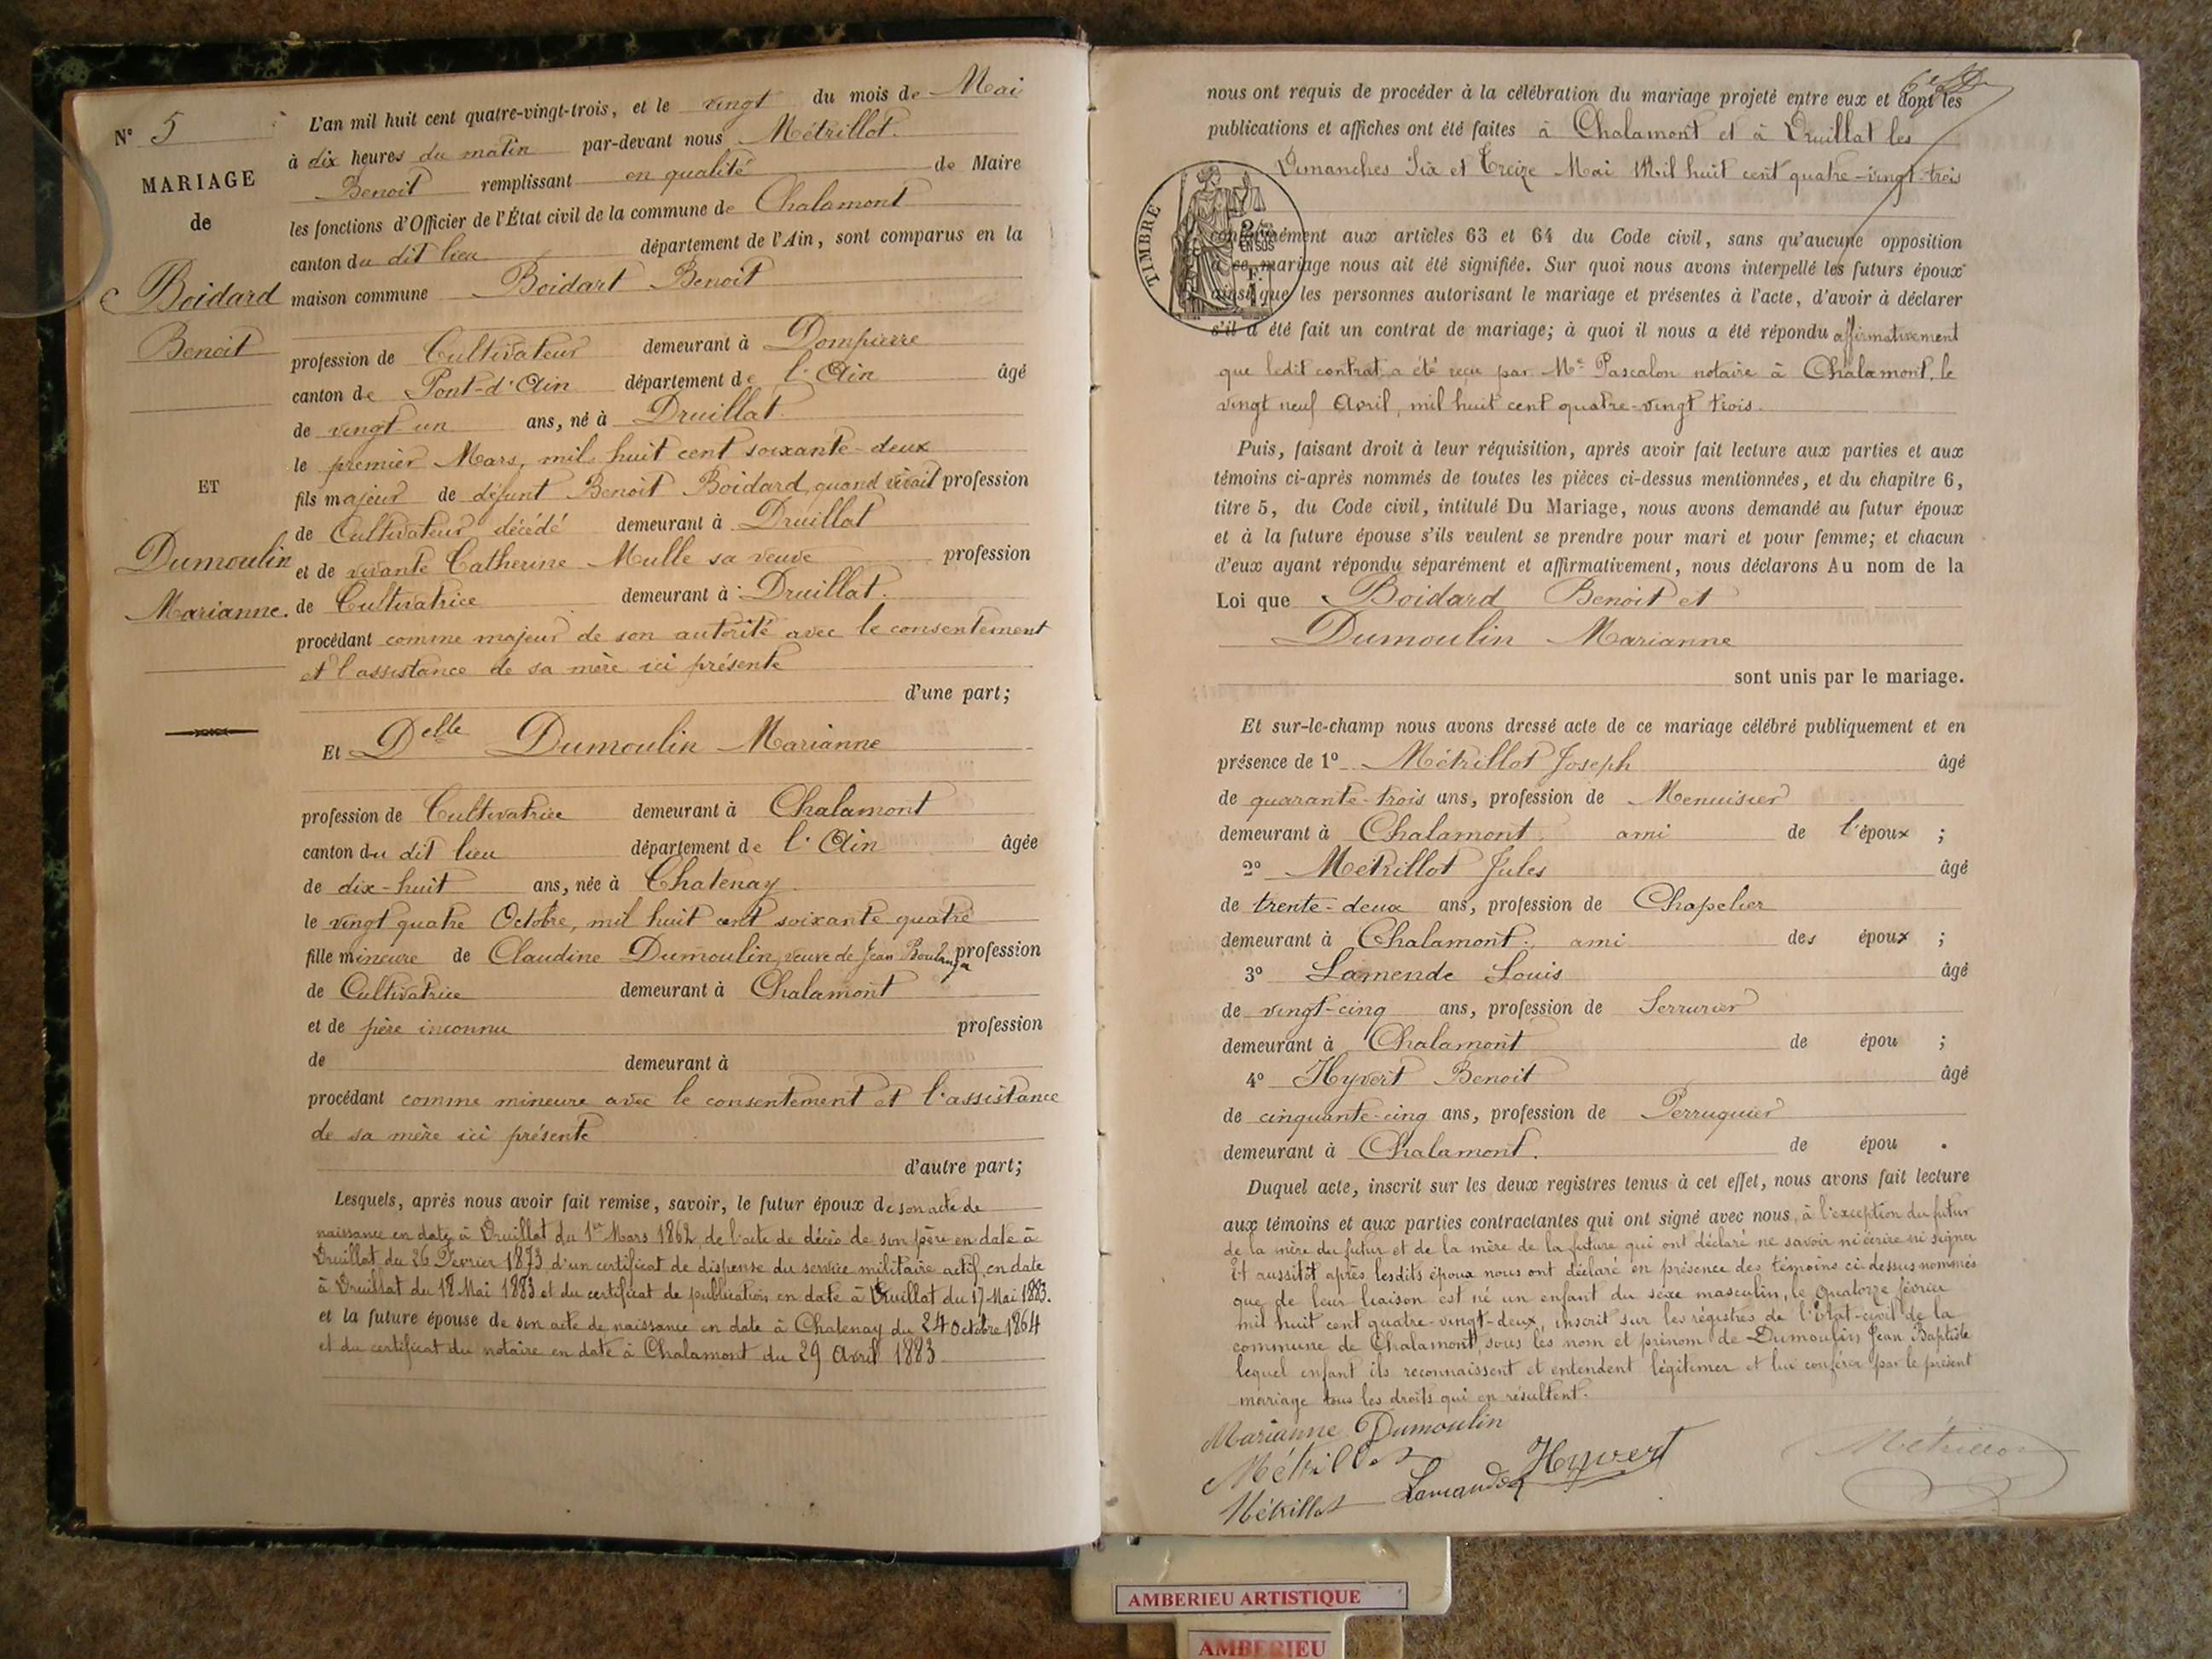 N° 5
MARIAGE
de
Boidard
Benoit
ET
Dumoulin
Marianne.
L'an mil huit cent quatre-vingt-trois, et le vingt du mois de Mai
à dix heures du matin par-devant nous Métrillot
Benoit remplissant en qualité de Maire
les fonctions d'Officier de l'État civil de la commune de Chalamont
canton du dit lieu département de l'Ain, sont comparus en la
maison commune Boidart Benoit
profession de Cultivateur demeurant à Dompierre
canton de Pont-d'Ain département de l'Ain âgé
de vingt un ans, né à Druillat
le premier Mars, mil huit cent soixante-deux
fils majeur de défunt Benoit Boidard, quand vivait profession
de Cultivateur décédé demeurant à Druillat
et de vivante Catherine Mulle sa veuve profession
de Cultivatrice demeurant à Druillat.
procédant comme majeur de son autorité avec le consentement
et l'assistance de sa mère ici présente
d'une part;
Et Delle Dumoulin Marianne
profession de Cultivatrice demeurant à Chalamont
canton du dit lieu département de l'Ain âgée
de dix-huit ans, née à Chatenay
le vingt quatre Octobre, mil huit cent soixante quatre
fille mineure de Claudine Dumoulin, veuve de Jean Boulanger profession
de Cultivatrice demeurant à Chalamont
et de père inconnu profession
de demeurant à
procédant comme mineure avec le consentement et l'assistance
de sa mère ici présente
d'autre part;
Lesquels, après nous avoir fait remise, savoir, le futur époux de son acte de
naissance en date à Druillat du 1er Mars 1862, de l'acte de décès de son père en date à
Druillat du 26 Février 1873 d'un certificat de dispense du service militaire actif, en date
à Druillat du 18 Mai 1883 et du certificat de publication en date à Druillat du 17 Mai 1883.
et la future épouse de son acte de naissance en date à Chatenay du 24 Octobre 1864
et du certificat du notaire en date à Chalamont du 29 Avril 1883
nous ont requis de procéder à la célébration du mariage projeté entre eux et dont les
publications et affiches ont été faites à Chalamont et à Druillat les
Dimanches Six et Treize Mai Mil huit cent quatre-vingt-trois
TIMBRE
conformément aux articles 63 et 64 du Code civil, sans qu'aucune opposition
à ce mariage nous ait été signifiée. Sur quoi nous avons interpellé les futurs époux
ainsi que les personnes autorisant le mariage et présentes à l'acte, d'avoir à déclarer
s'il a été fait un contrat de mariage; à quoi il nous a été répondu affirmativement
que ledit contrat a été reçu par Me Pascalon notaire à Chalamont, le
vingt neuf Avril, mil huit cent quatre-vingt trois.
Puis, faisant droit à leur réquisition, après avoir fait lecture aux parties et aux
témoins ci-après nommés de toutes les pièces ci-dessus mentionnées, et du chapitre 6,
titre 5, du Code civil, intitulé Du Mariage, nous avons demandé au futur époux
et à la future épouse s'ils veulent se prendre pour mari et pour femme; et chacun
d'eux ayant répondu séparément et affirmativement, nous déclarons Au nom de la
Loi que Boidard Benoit et
Dumoulin Marianne
sont unis par le mariage.
Et sur-le-champ nous avons dressé acte de ce mariage célébré publiquement et en
présence de 1° Métrillot Joseph âgé
de quarante-trois ans, profession de Menuisier
demeurant à Chalamont ami de l'époux ;
2° Métrillot Jules âgé
de trente-deux ans, profession de Chapelier
demeurant à Chalamont. ami des époux ;
3° Lamende Louis âgé
de vingt-cinq ans, profession de Serrurier
demeurant à Chalamont de épou ;
4° Hyvert Benoit âgé
de cinquante-cinq ans, profession de Perruquier
demeurant à Chalamont. de épou .
Duquel acte, inscrit sur les deux registres tenus à cet effet, nous avons fait lecture
aux témoins et aux parties contractantes qui ont signé avec nous, à l'exception du futur
de la mère du futur et de la mère de la future qui ont déclaré ne savoir ni écrire ni signer
Et aussitôt après lesdits époux nous ont déclaré en présence des témoins ci-dessus nommés
que de leur liaison est né un enfant du sexe masculin, le quatorze février
mil huit cent quatre-vingt-deux, inscrit sur les régistres de l'Etat-civil de la
commune de Chalamont, sous les nom et prénom de Dumoulin Jean Baptiste
lequel enfant ils reconnaissent et entendent légitimer et lui conférer par le présent
mariage tous les droits qui en résultent.
Marianne Dumoulin
Métrillot
Hyvert
Métrillot
Métrillot
AMBERIEU ARTISTIQUE
AMBERIEU